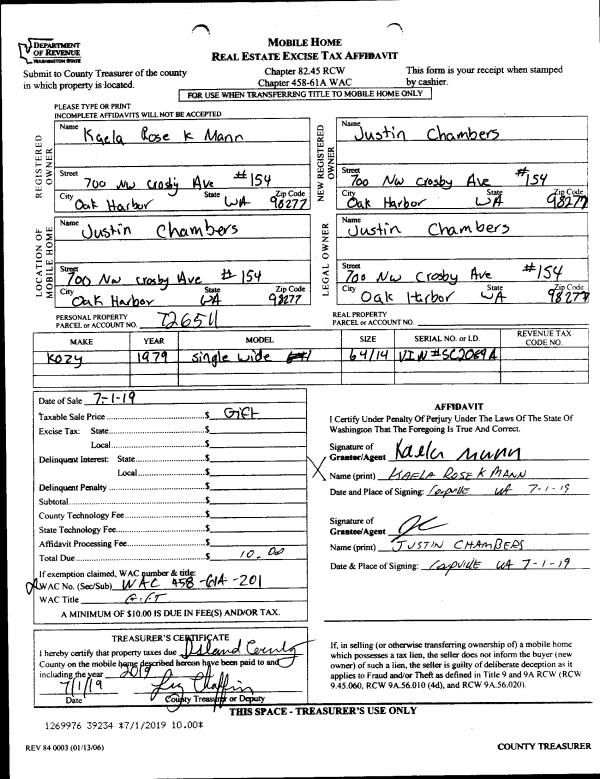 DEPARTMENT
OF REVENUE
WASHINGTON STATE
MOBILE HOME
REAL ESTATE EXCISE TAX AFFIDAVIT
Submit to County Treasurer of the county
in which property is located.
Chapter 82.45 RCW
Chapter 458-61A WAC
This form is your receipt when stamped
by cashier.
FOR USE WHEN TRANSFERRING TITLE TO MOBILE HOME ONLY
PLEASE TYPE OR PRINT
INCOMPLETE AFFIDAVITS WILL NOT BE ACCEPTED
REGISTERED OWNER
Name Kaela Rose K Mann
Street 700 NW Crosby Ave #154
City Oak Harbor State WA Zip Code 98277
NEW REGISTERED OWNER
Name Justin Chambers
Street 700 NW Crosby Ave #154
City Oak Harbor State WA Zip Code 98277
LOCATION OF MOBILE HOME
Name Justin Chambers
Street 700 NW Crosby Ave #154
City Oak Harbor State WA Zip Code 98277
LEGAL OWNER
Name Justin Chambers
Street 700 NW Crosby Ave #154
City Oak Harbor State WA Zip Code 98277
PERSONAL PROPERTY
PARCEL or ACCOUNT NO.
REAL PROPERTY
PARCEL or ACCOUNT NO.
MAKE YEAR MODEL SIZE SERIAL NO. or I.D. REVENUE TAX CODE NO.
KOZY 1979 Single wide 64/14 VIN #SC2069A
Date of Sale 7-1-19
Taxable Sale Price $ Gift
Excise Tax: State $
Local $
Delinquent Interest: State $
Local $
Delinquent Penalty $
Subtotal $
County Technology Fee $
State Technology Fee $
Affidavit Processing Fee $
Total Due $ 10.00
If exemption claimed, WAC number & title:
WAC No. (Sec/Sub) WAC 458-61A-201
WAC Title Gift
A MINIMUM OF $10.00 IS DUE IN FEE(S) AND/OR TAX.
AFFIDAVIT
I Certify Under Penalty Of Perjury Under The Laws Of The State Of
Washington That The Foregoing Is True And Correct.
Signature of
Grantor/Agent Kaela Mann
X Name (print) KAELA ROSE K MANN
Date and Place of Signing: WA 7-1-19
Signature of
Grantee/Agent
Name (print) JUSTIN CHAMBERS
Date & Place of Signing: WA 7-1-19
TREASURER'S CERTIFICATE
I hereby certify that property taxes due Island County
County on the mobile home described hereon have been paid to and
including the year 2019
7/1/19
Date County Treasurer or Deputy
If, in selling (or otherwise transferring ownership of) a mobile home
which possesses a tax lien, the seller does not inform the buyer (new
owner) of such a lien, the seller is guilty of deliberate deception as it
applies to Fraud and/or Theft as defined in Title 9 and 9A RCW (RCW
9.45.060, RCW 9A.56.010 (4d), and RCW 9A.56.020).
THIS SPACE - TREASURER'S USE ONLY
1269976 39234 *7/1/2019 10.00*
REV 84 0003 (01/13/06)
COUNTY TREASURER